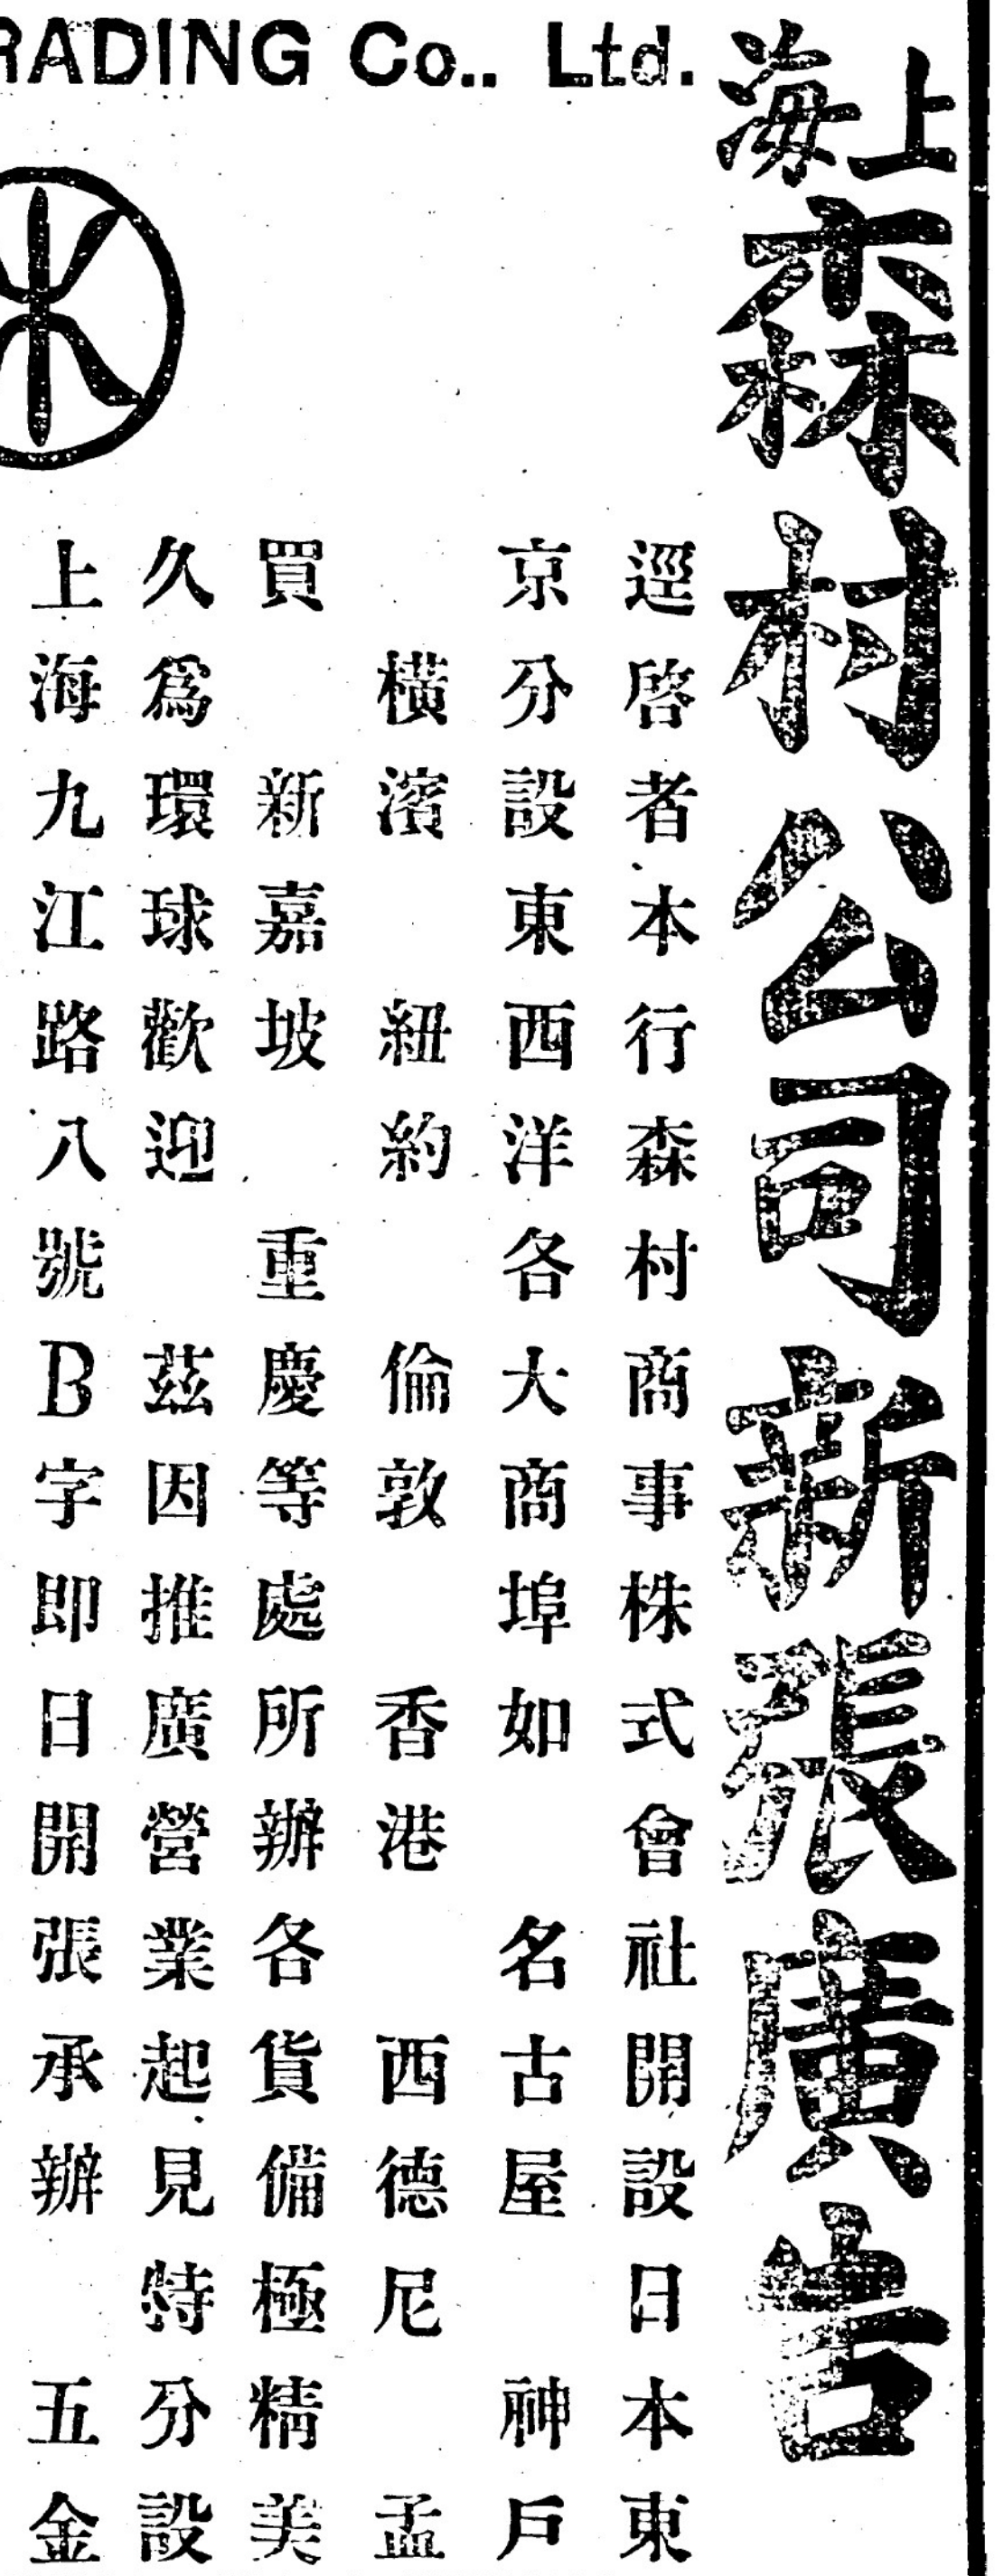 RADING Co.. Ltd.
上海
森村公司新張廣告
逕啓者本行森村商事株式會社開設日本東
京分設東西洋各大商埠如 名古屋 神戶
橫濱 紐約 倫敦 香港 西德尼 孟
買 新嘉坡 重慶等處所辦各貨備極精美
久爲環球歡迎 茲因推廣營業起見特分設
上海九江路八號B字卽日開張承辦 五金